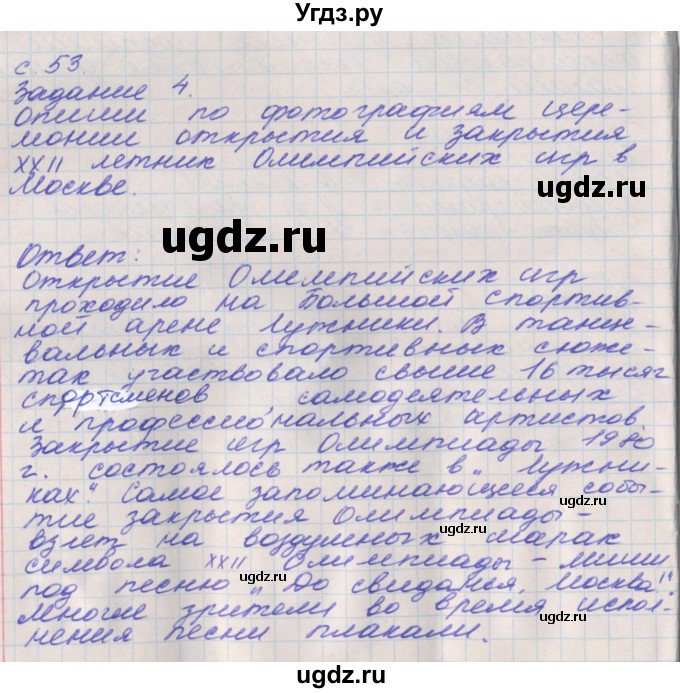 Угдз.ру
с. 53.
Задание 4.
Опиши по фотографиям цере-
монии открытия и закрытия
XXII летних Олимпийских игр в
Москве.
ugdz.ru
Ответ:
Открытие Олимпийских игр
проходило на Большой спортив-
ной арене Лужники. В танце-
вальных и спортивных сюже-
тах участвовало свыше 16 тысяч
спортсменов, самодеятельных
и профессиональных артистов.
Закрытие игр Олимпиады 1980
г. состоялось также в „Лужни-
ках“ Самое запоминающееся собы-
тие закрытия Олимпиады -
взлет на воздушных шарах
символа XXII Олимпиады - миши
под песню „До свиданья, Москва!“
Многие зрители во время испол-
нения песни плакали.
ugdz.ru
ugdz.ru
ugdz.ru
ugdz.ru
ugdz.ru
ugdz.ru
ugdz.ru